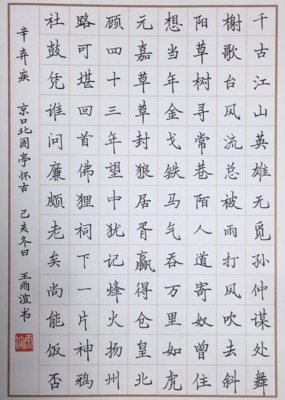 千古江山英雄无觅孙仲谋处舞
榭歌台风流总被雨打风吹去斜
阳草树寻常巷陌人道寄奴曾住
想当年金戈铁马气吞万里如虎
元嘉草草封狼居胥赢得仓皇北
顾四十三年望中犹记烽火扬州
路可堪回首佛狸祠下一片神鸦
社鼓凭谁问廉颇老矣尚能饭否
辛弃疾 京口北固亭怀古 己亥冬日 王雨渲书